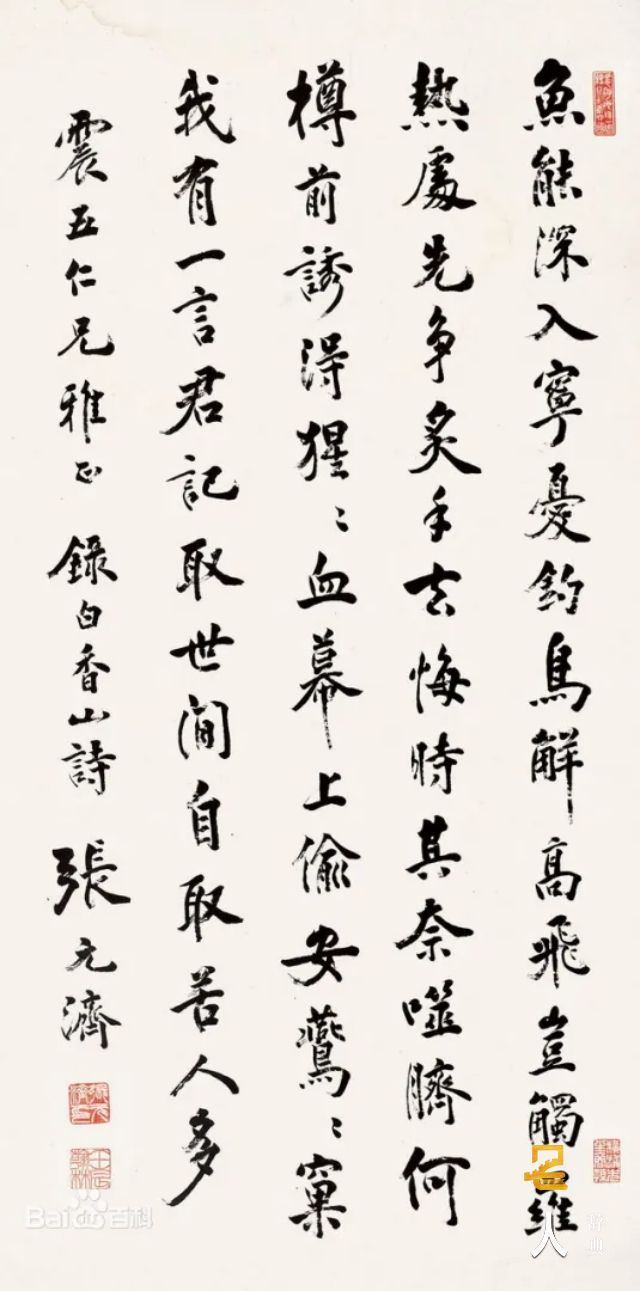 魚能深入寧憂釣鳥解高飛豈觸羅
熱處先爭炙手去悔時其奈噬臍何
樽前誘得猩〻血幕上偷安鷰〻窠
我有一言君記取世間自取苦人多
震五仁兄雅正 錄白香山詩 張元濟
Bai百科
名人